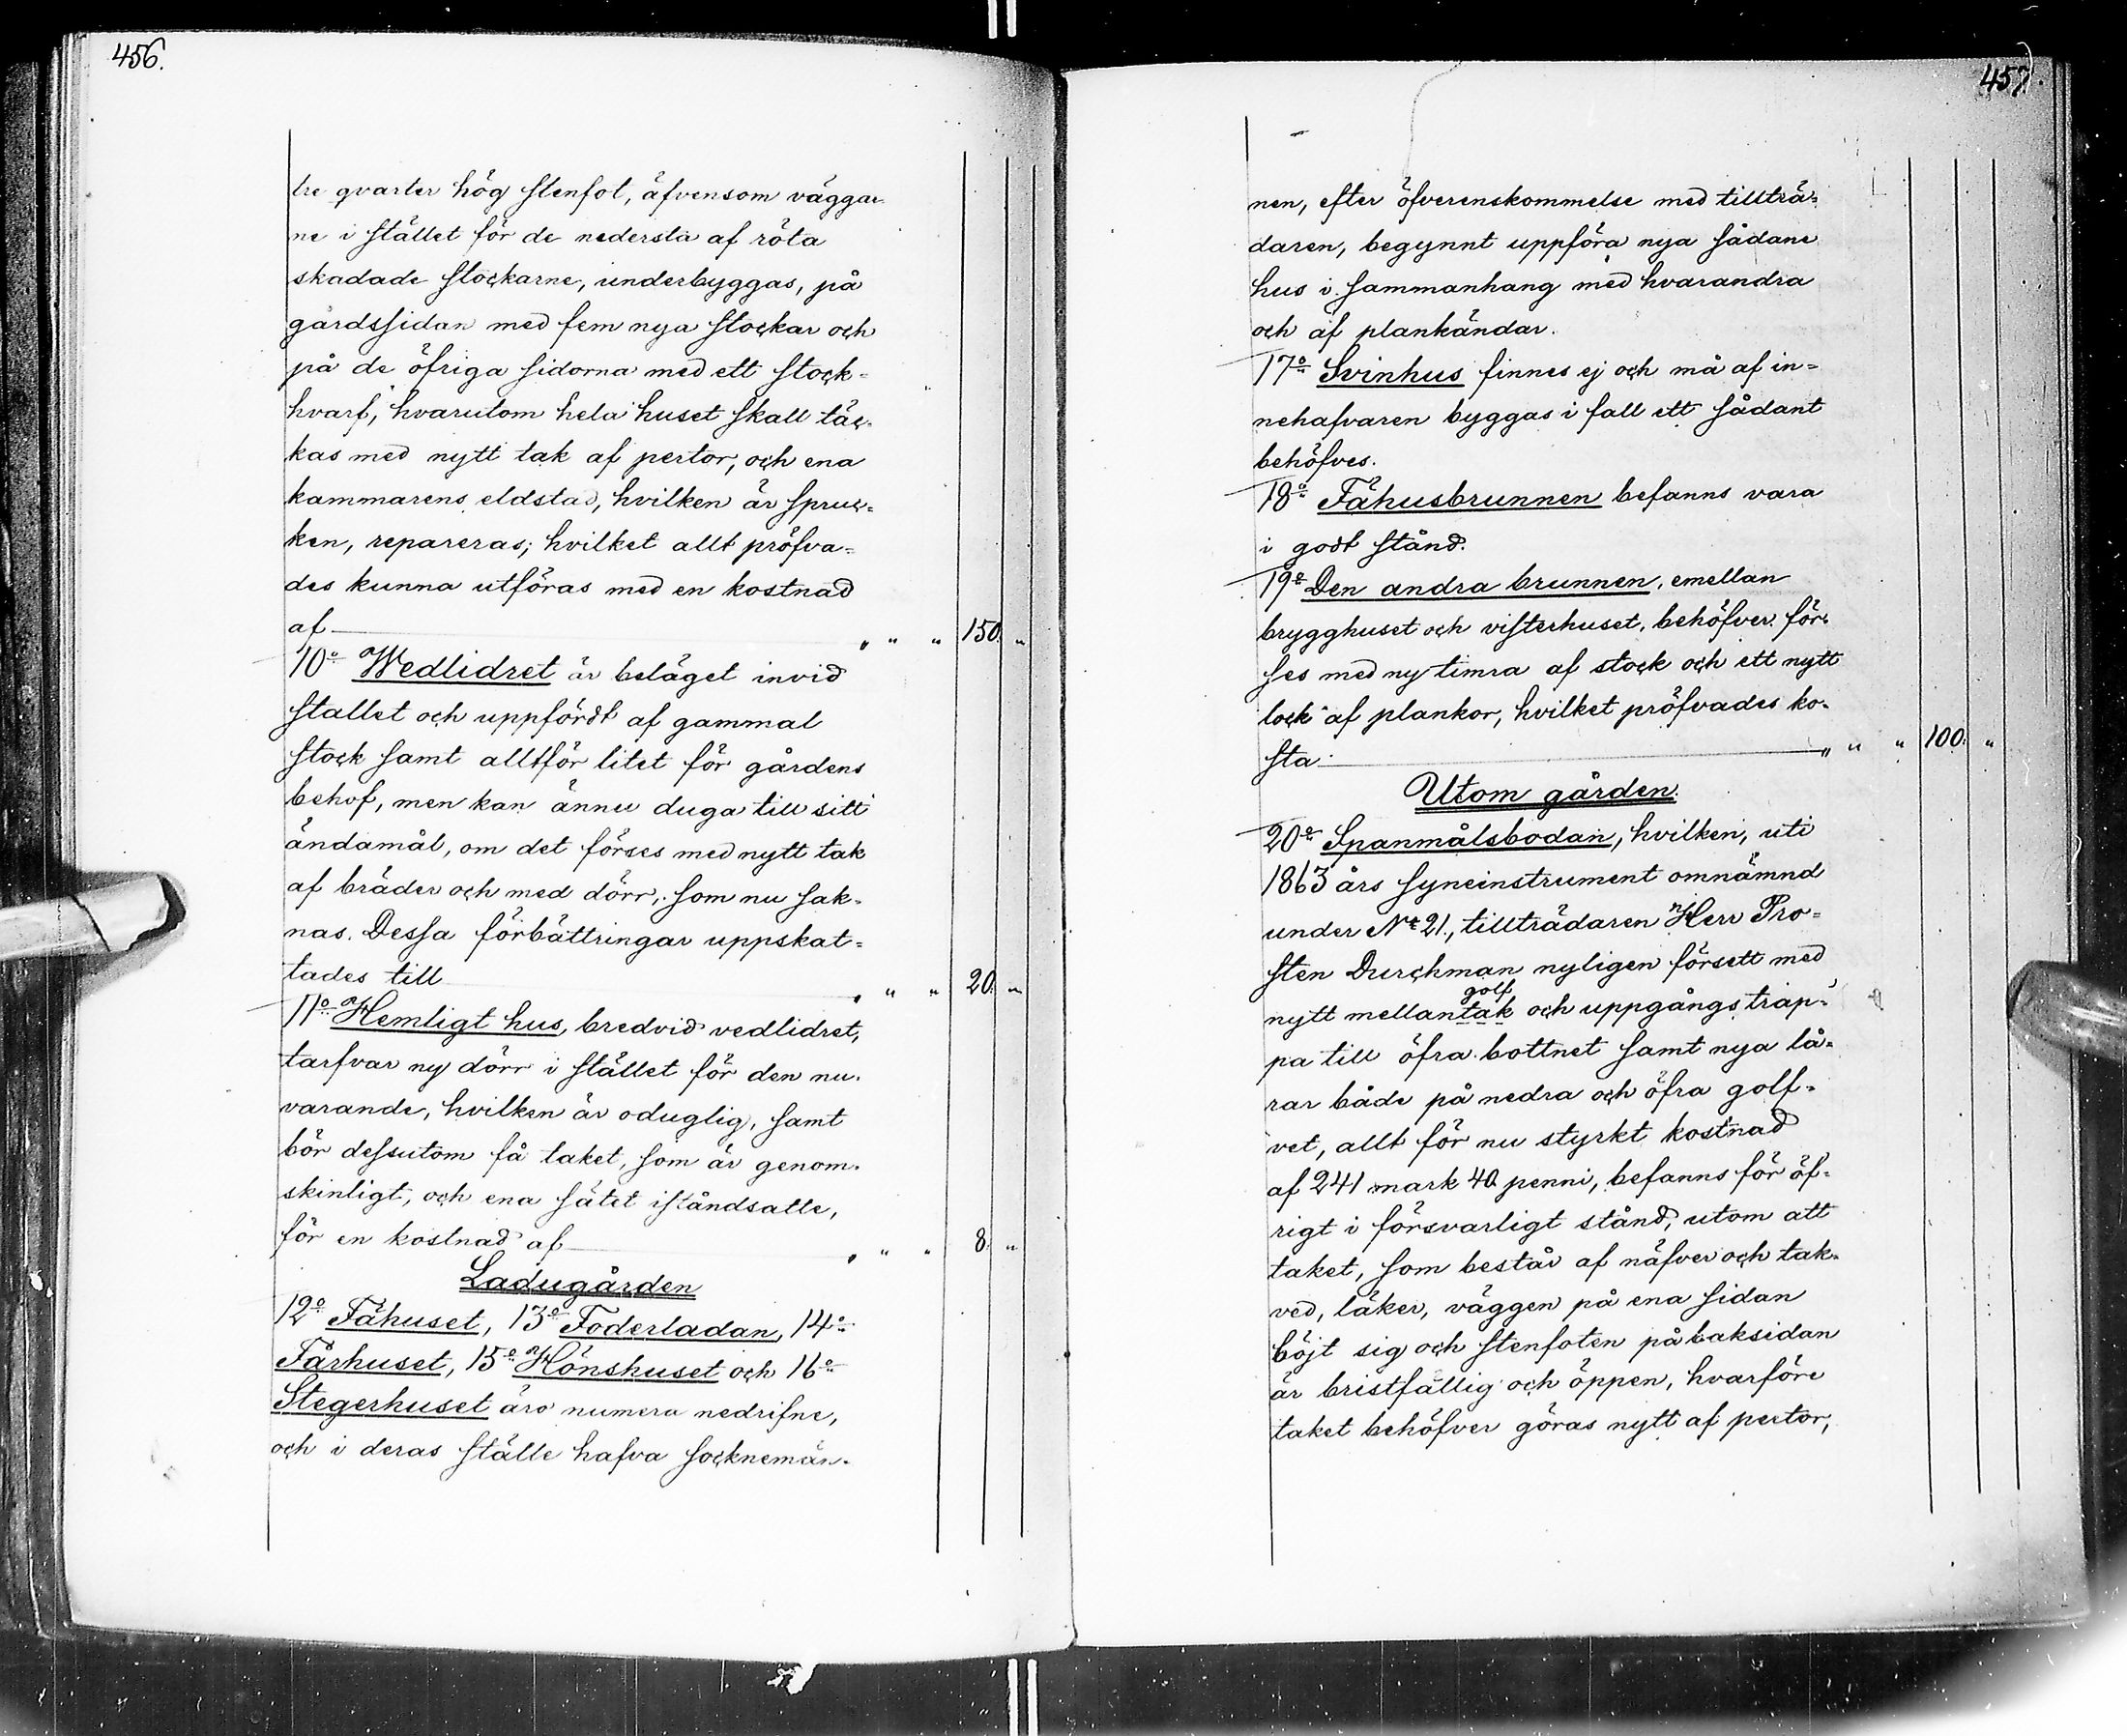 456.
tre qvarter hög stenfot, äfvensom väggar-
ne i stället för de nedersta af röta
skadade stockarne, underbyggas, på
gårdssidan med fem nya stockar och
på de öfriga sidorna med ett stock-
hvarf, hvarutom hela huset skall täc-
kas med nytt tak af pertor, och ena
kammarens eldstad, hvilken är spruc-
ken, repareras; hvilket allt pröfva-
des kunna utföras med en kostnad
af " " " 150. "
10:o Wedlidret är beläget invid
stallet och uppfördt af gammal
stock samt alltför litet för gårdens
behof, men kan ännu duga till sitt
ändamål, om det förses med nytt tak
af bräder och med dörr, som nu sak-
nas. Dessa förbättringar uppskat-
tades till " " " 20. "
11:o Hemligt hus, bredvid vedlidret,
tarfvar ny dörr i stället för den nu-
varande, hvilken är oduglig, samt
bör dessutom få taket, som är genom-
skinligt, och ena sätet iståndsatte,
för en kostnad af " " " 8. "
Ladugården
12:o Fähuset, 13:o Foderladan, 14:o
Fårhuset, 15:o Hönshuset och 16:o
Stegerhuset äro numera nedrifne,
och i deras ställe hafva socknemän-
457.
nen, efter öfverenskommelse med tillträ-
daren, begynnt uppföra nya sådane
hus i sammanhang med hvarandra
och af plankändar.
17:o Svinhus finnes ej och må af in-
nehafvaren byggas i fall ett sådant
behöfves.
18:o Fähusbrunnen befanns vara
i godt stånd.
19:o Den andra brunnen, emellan
brygghuset och visterhuset, behöfver för-
ses med ny timra af stock och ett nytt
lock af plankor, hvilket pröfvades ko-
sta " " " 100. "
Utom gården.
20:o Spanmålsbodan, hvilken, uti
1863 års syneinstrument omnämnd
under No 21., tillträdaren Herr Pro-
sten Durchman nyligen försett med
golf
nytt mellantak och uppgångs trap-
pa till öfra bottnet samt nya lå-
rar både på nedra och öfra golf-
vet, allt för nu styrkt kostnad
af 241 mark 40 penni, befanns för öf-
rigt i försvarligt stånd, utom att
taket, som består af näfver och tak-
ved, läker, väggen på ena sidan
böjt sig och stenfoten på baksidan
är bristfällig och öppen, hvarföre
taket behöfver göras nytt af pertor,